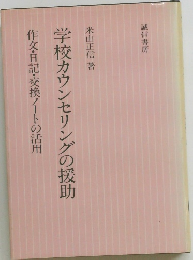 誠信書房
米山正信 著
学校カウンセリングの援助
作文・日記・交換ノートの活用